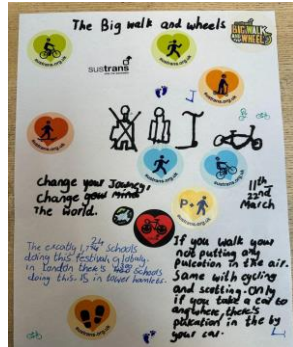 The Big walk and wheels
BIG WALK
AND
WHEEL
sustrans
sustrans.org.uk
sustrans.org.uk
sustrans.org.uk
sustrans.org.uk
sustrans.org.uk
sustrans.org.uk
change your Journey,
change your Mind
The world.
P
11th
22nd
March
schools
doing this festival globaly.
in London there's schools
doing this. 15 in tower hamlets.
If you walk your
not putting any
in the air.
Same with cycling
and scotting. Only
if you take a car to
anywhere, there's
in the by
your car.
sustrans.org.uk